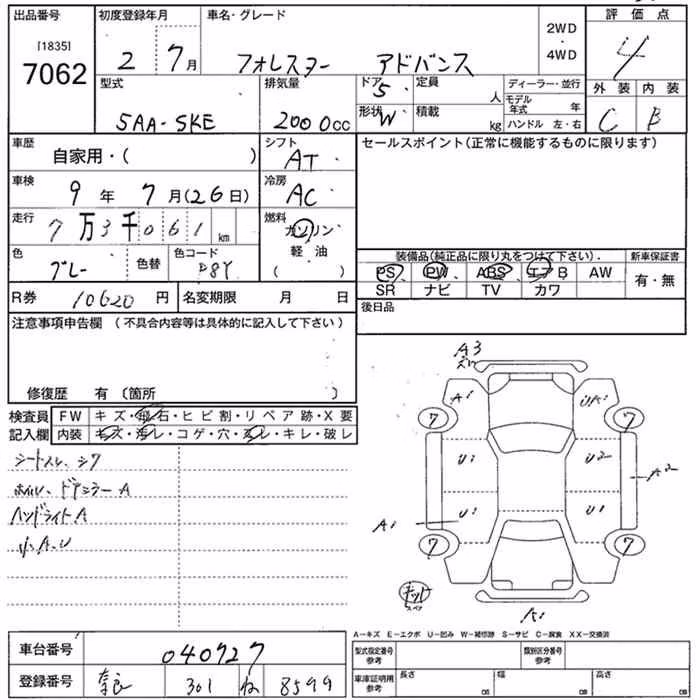 出品番号 初度登録年月 車名・グレード 評価点
[1835]
7062
2 7月 フォレスター アドバンス 2WD 4WD 4
型式 排気量 ドア 5 定員 人 ディーラー・並行 外装 内装
モデル年式 年
5AA-SKE 2000cc 形状 W 積載 kg ハンドル 左・右 C B
車歴 自家用・( ) シフト AT セールスポイント(正常に機能するものに限ります)
車検 9年 7月(26日) 冷房 AC
走行 7万3千061km 燃料 ガソリン
軽油
( )
色 グレー 色替 色コード P8Y
装備品(純正品に限り丸をつけて下さい). 新車保証書
PS PW ABS エアB AW 有・無
SR ナビ TV カワ
R券 10620円 名変期限 月 日 後日品
注意事項申告欄(不具合内容等は具体的に記入して下さい)
修復歴 有(箇所 )
検査員 FW キズ・飛石・ヒビ割・リペア跡・X要
記入欄 内装 キズ・汚レ・コゲ・穴・スレ・キレ・破レ
シートスレ、シワ
ホイル、ドアミラーA
ハンドライトA
小A.U
A3
A1 UA1
7 7
U1 U2
A2
U1 U1
A1
7 7
A1
A-キズ E-エクボ U-凹み W-補修跡 S-サビ C-腐食 XX-交換済
車台番号 040727 型式指定番号 参考 類別区分番号 参考
登録番号 奈良 301 ね 8599 車庫証明用 参考 長さ cm 幅 cm 高さ cm